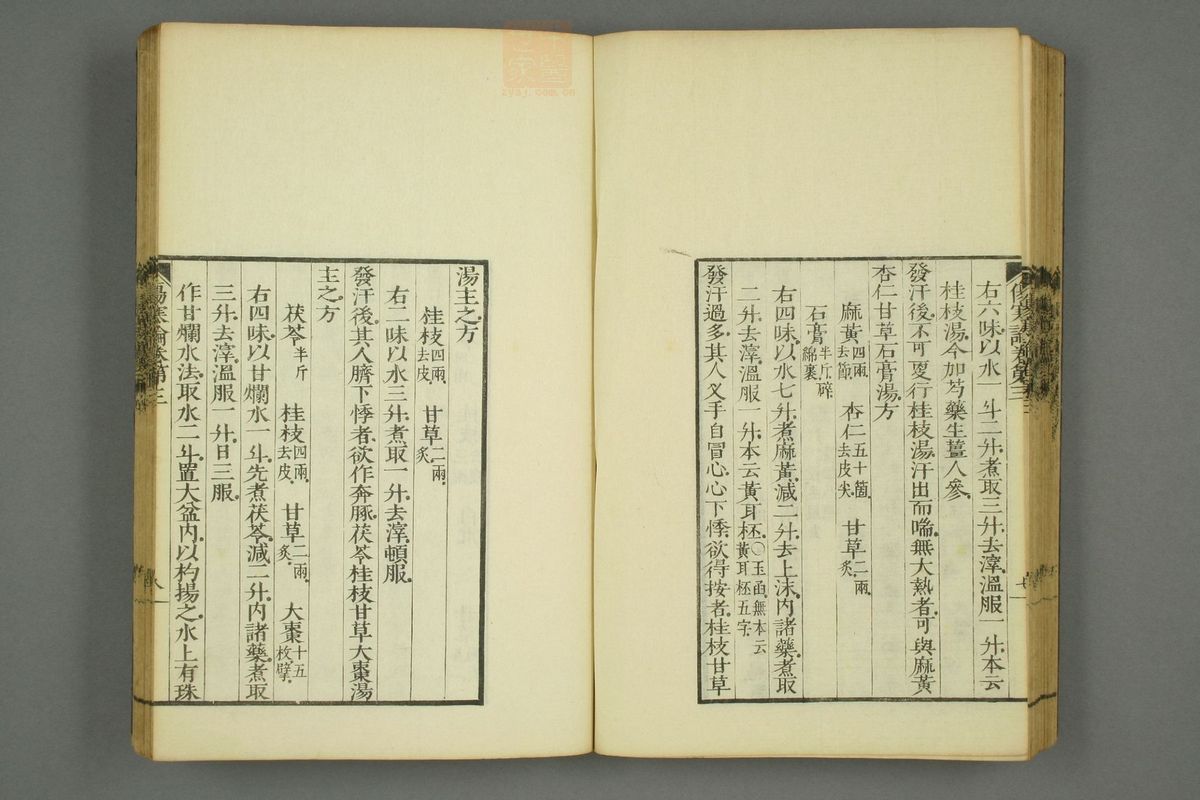 右六味以水一斗二升煮取三升去滓溫服一升本云
桂枝湯今加芍藥生薑人參
發汗後不可更行桂枝湯汗出而喘無大熱者可與麻黃
杏仁甘草石膏湯方
麻黃四兩去節 杏仁五十箇去皮尖 甘草二兩炙
石膏半斤碎綿裹
右四味以水七升煮麻黃減二升去上沫內諸藥煮取
二升去滓溫服一升本云黃耳柸〇玉函無本云黃耳柸五字
發汗過多其人叉手自冒心心下悸欲得按者桂枝甘草
湯主之方
桂枝四兩去皮 甘草二兩炙
右二味以水三升煮取一升去滓頓服
發汗後其人臍下悸者欲作奔豚茯苓桂枝甘草大棗湯
主之方
茯苓半斤 桂枝四兩去皮 甘草二兩炙 大棗十五枚擘
右四味以甘爛水一斗先煮茯苓減二升內諸藥煮取
三升去滓溫服一升日三服
作甘爛水法取水二斗置大盆內以杓揚之水上有珠
傷寒論卷第三
八
zysj.com.cn